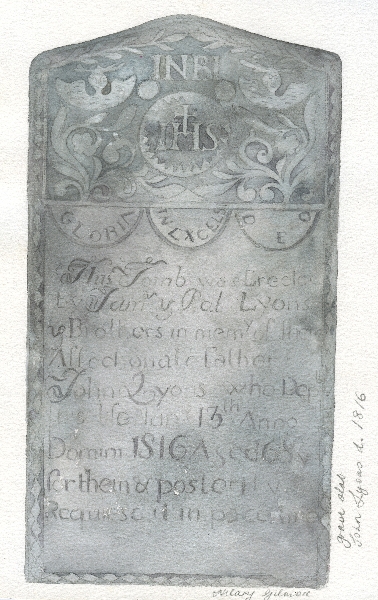 INRI
IHS
GLORIA IN EXCELS DEO
This Tomb was Erected
by & Pat Lyons
Brothers in memy of their
Affectionate Father
John Lyons who Dep
13th Anno
Domini 1816 Aged 68 y
for them & posterit
Requiescat in pace
John Lyons d. 1816
Hilary Gilmore